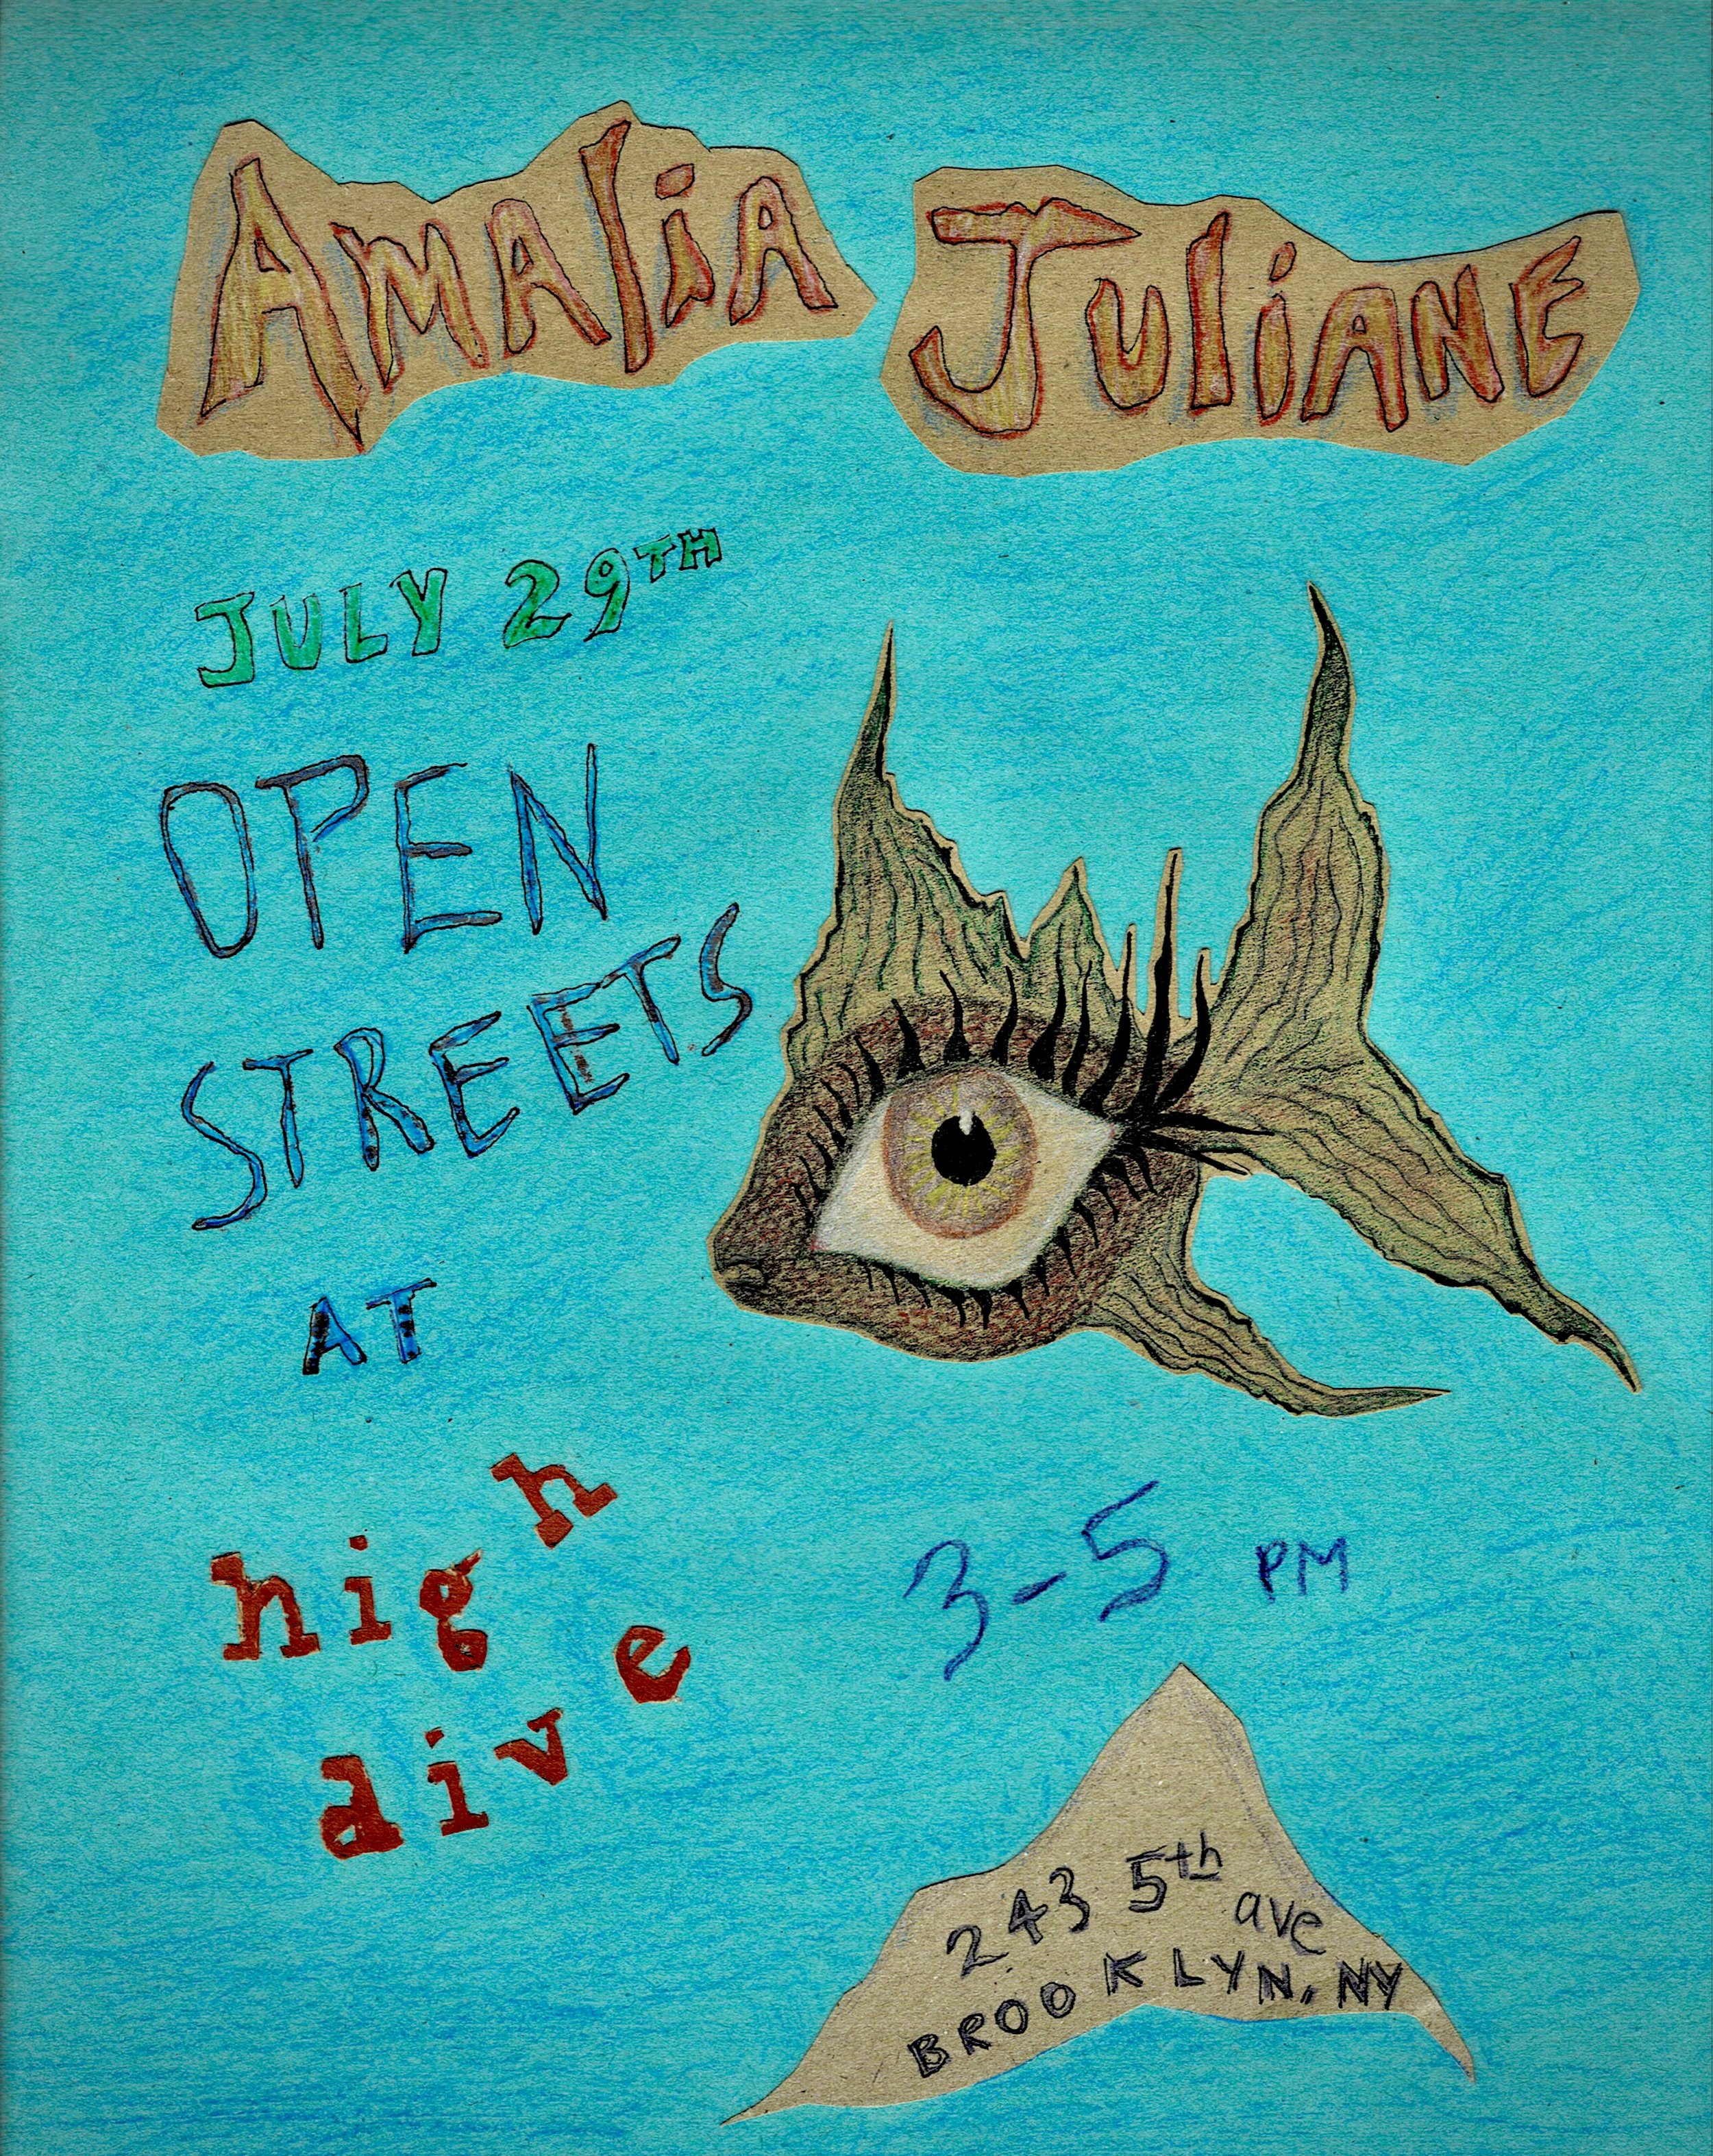 AMAliA JUliANE
JULY 29TH
OPEN
STREETS
AT
high
dive
3-5 PM
243 5th ave
BROOKLYN, NY